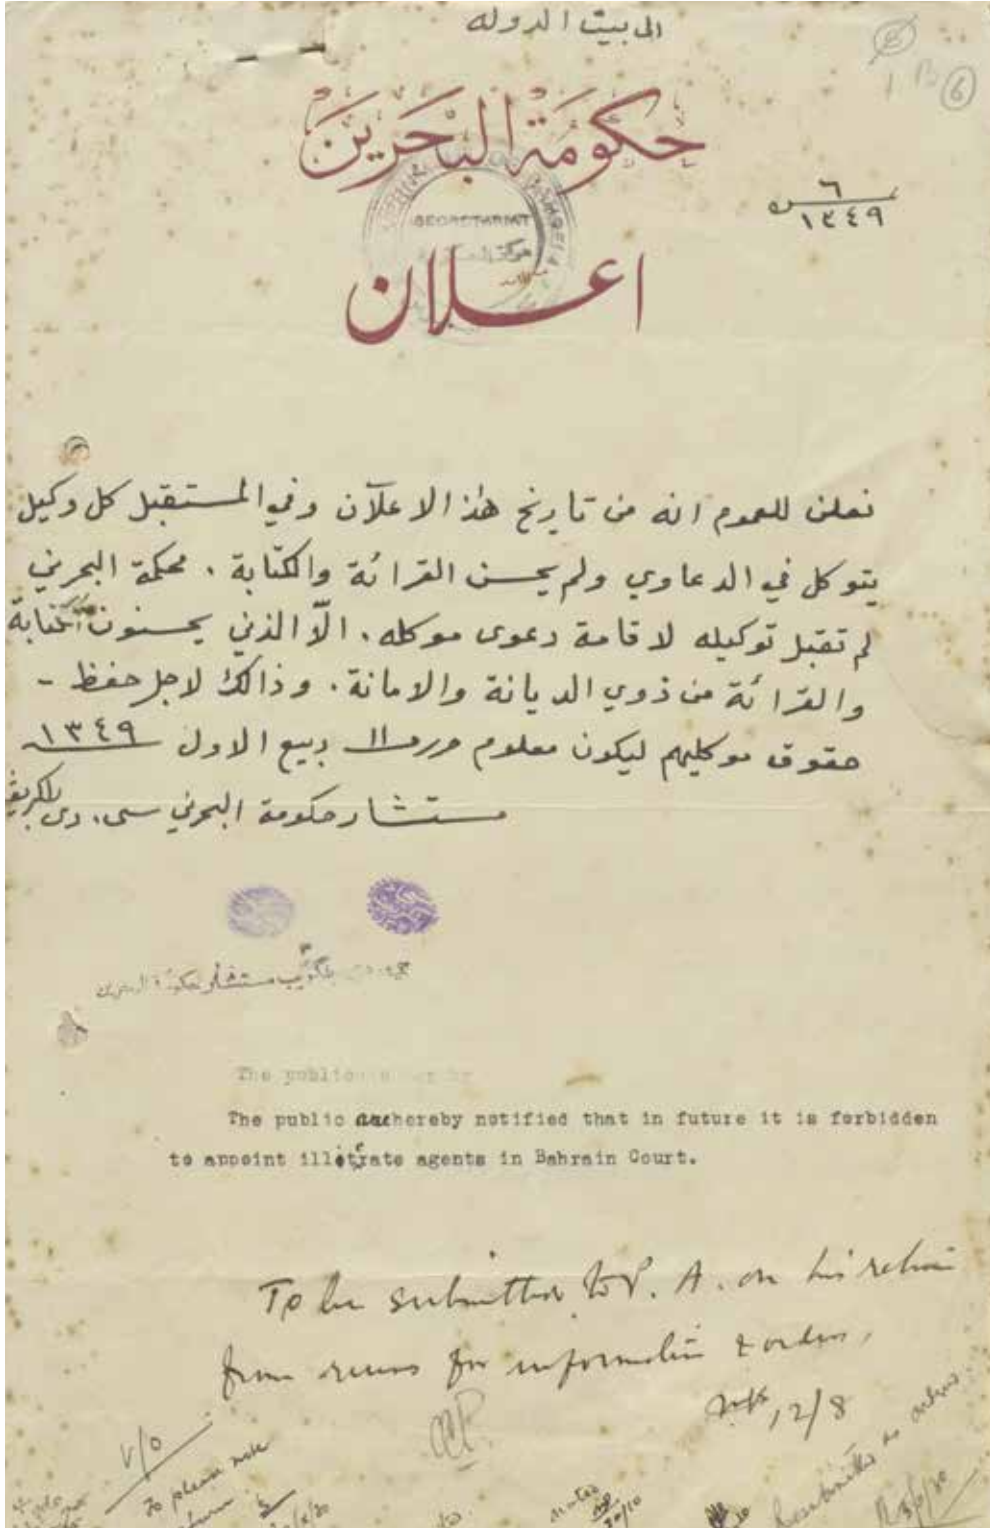 الى بيت الدوله
6
1349
حكومة البحرين
SECRETARIAT
اعلان
نعلن للعموم انه من تاريخ هٰذا الاعلآن وفي المستقبل كل وكيل
يتوكل في الدعاوي ولم يحسن القرائة والكتابة . محكمة البحرين
لم تقبل توكيله لاقامة دعوى موكله . الّا الذين يحسنون الكتابة
والقرائة من ذوي الديانة والامانة . وذالك لاجل حفظ -
حقوق موكليهم ليكون معلوم حرر ١١ ربيع الاول ١٣٤٩
مستشار حكومة البحرين سى. دى بلكريف
مستشار حكومة البحرين
The public
The public are hereby notified that in future it is forbidden
to appoint illiterate agents in Bahrain Court.
To be submitted to P. A. on his return
from for information & orders.
12/8
V/O
To please note